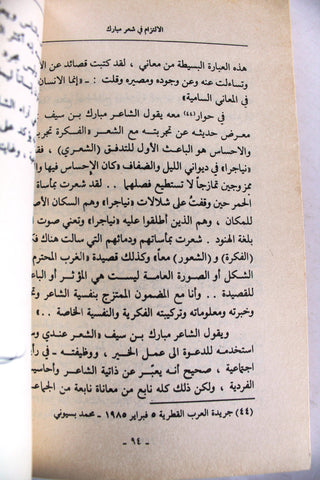 الالتزام في شعر مبارك
هذه العبارة البسيطة من معاني ، لقد كتبت قصائد عن الا
وتساءلت عنه وعن وجوده ومصيره وقلت : - «إنما الانسان
في المعاني السامية»
في حوار(٤٤) معه يقول الشاعر مبارك بن سيف
معرض حديثه عن تجربته مع الشعر «الفكرة تجربة
هي الباعث الأول للتدفق الشعري) ، فقصيد
«نياجرا» في ديواني الليل والضفاف «كان الإحساس فيها
ممزوجين تمازجاً لا تستطيع فصلهما .. لقد شعرت بمأساة
الحمر حين وقفت على شلالات «نياجرا» وهم السكان الأص
للمكان ، وهم الذين أطلقوا عليه «نياجرا» وتعني صوت
بلغة الهنود . شعرت بمأساتهم ودمائهم التي سالت هناك
(الفكرة) و (الشعور) معاً» وكذلك قصيدة «الغرب المحترم
الشكل أو الصورة العامة ليست هي المؤثر أو الباع
للقصيدة .. وأنا مع المضمون الممتزج بنفسية الشاعر
وخبرته ومعلوماته وتركيبته الفكرية والنفسية الخاصة ..»
ويقول الشاعر مبارك بن سيف «الشعر عندي وس
استخدمه للدعوة الى عمل الخير ، ووظيفته - في رأي
اجتماعية ، صحيح أنه يعبّر عن ذاتية الشاعر وأحاسيس
الفردية ، ولكن ذلك كله نابع من معاناة نابعة من الجماع
(٤٤) جريدة العرب القطرية ٥ فبراير ١٩٨٥ - محمد بسيوني
- ٩٤ -